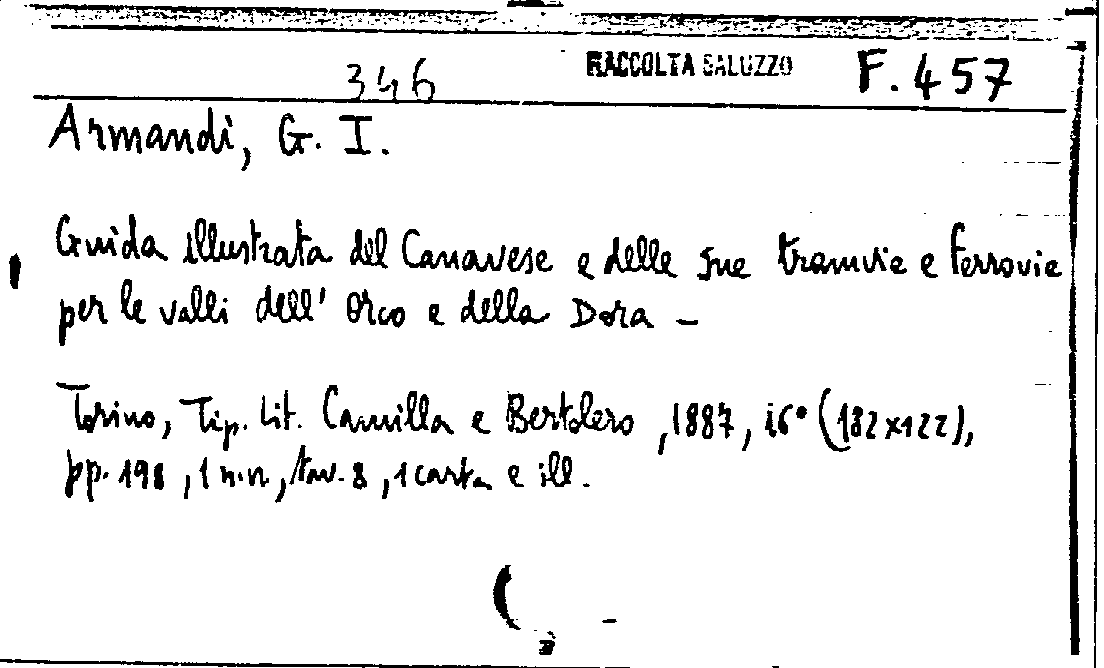 346 RACCOLTA SALUZZO F. 457
Armandi, G. I.
Guida illustrata del Canavese e delle sue tramvie e ferrovie
per le valli dell' Orco e della Dora –
Torino, Tip. Lit. Camilla e Bertolero, 1887, 16° (182x122),
pp. 198, 1 n.n, tav. 8, 1 carta e ill.